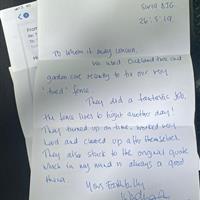 Fro
Hi
26.5.19
To whom it may concern,
We used Overland tree and
garden care recently to fix our very
'tired' fence.
They did a fantastic job,
the fence lives to fight another day!
They turned up on time, worked very
hard and cleared up after themselves.
They also stuck to the original quote
which in my mind is always a good
thing.
Yours Faithfully